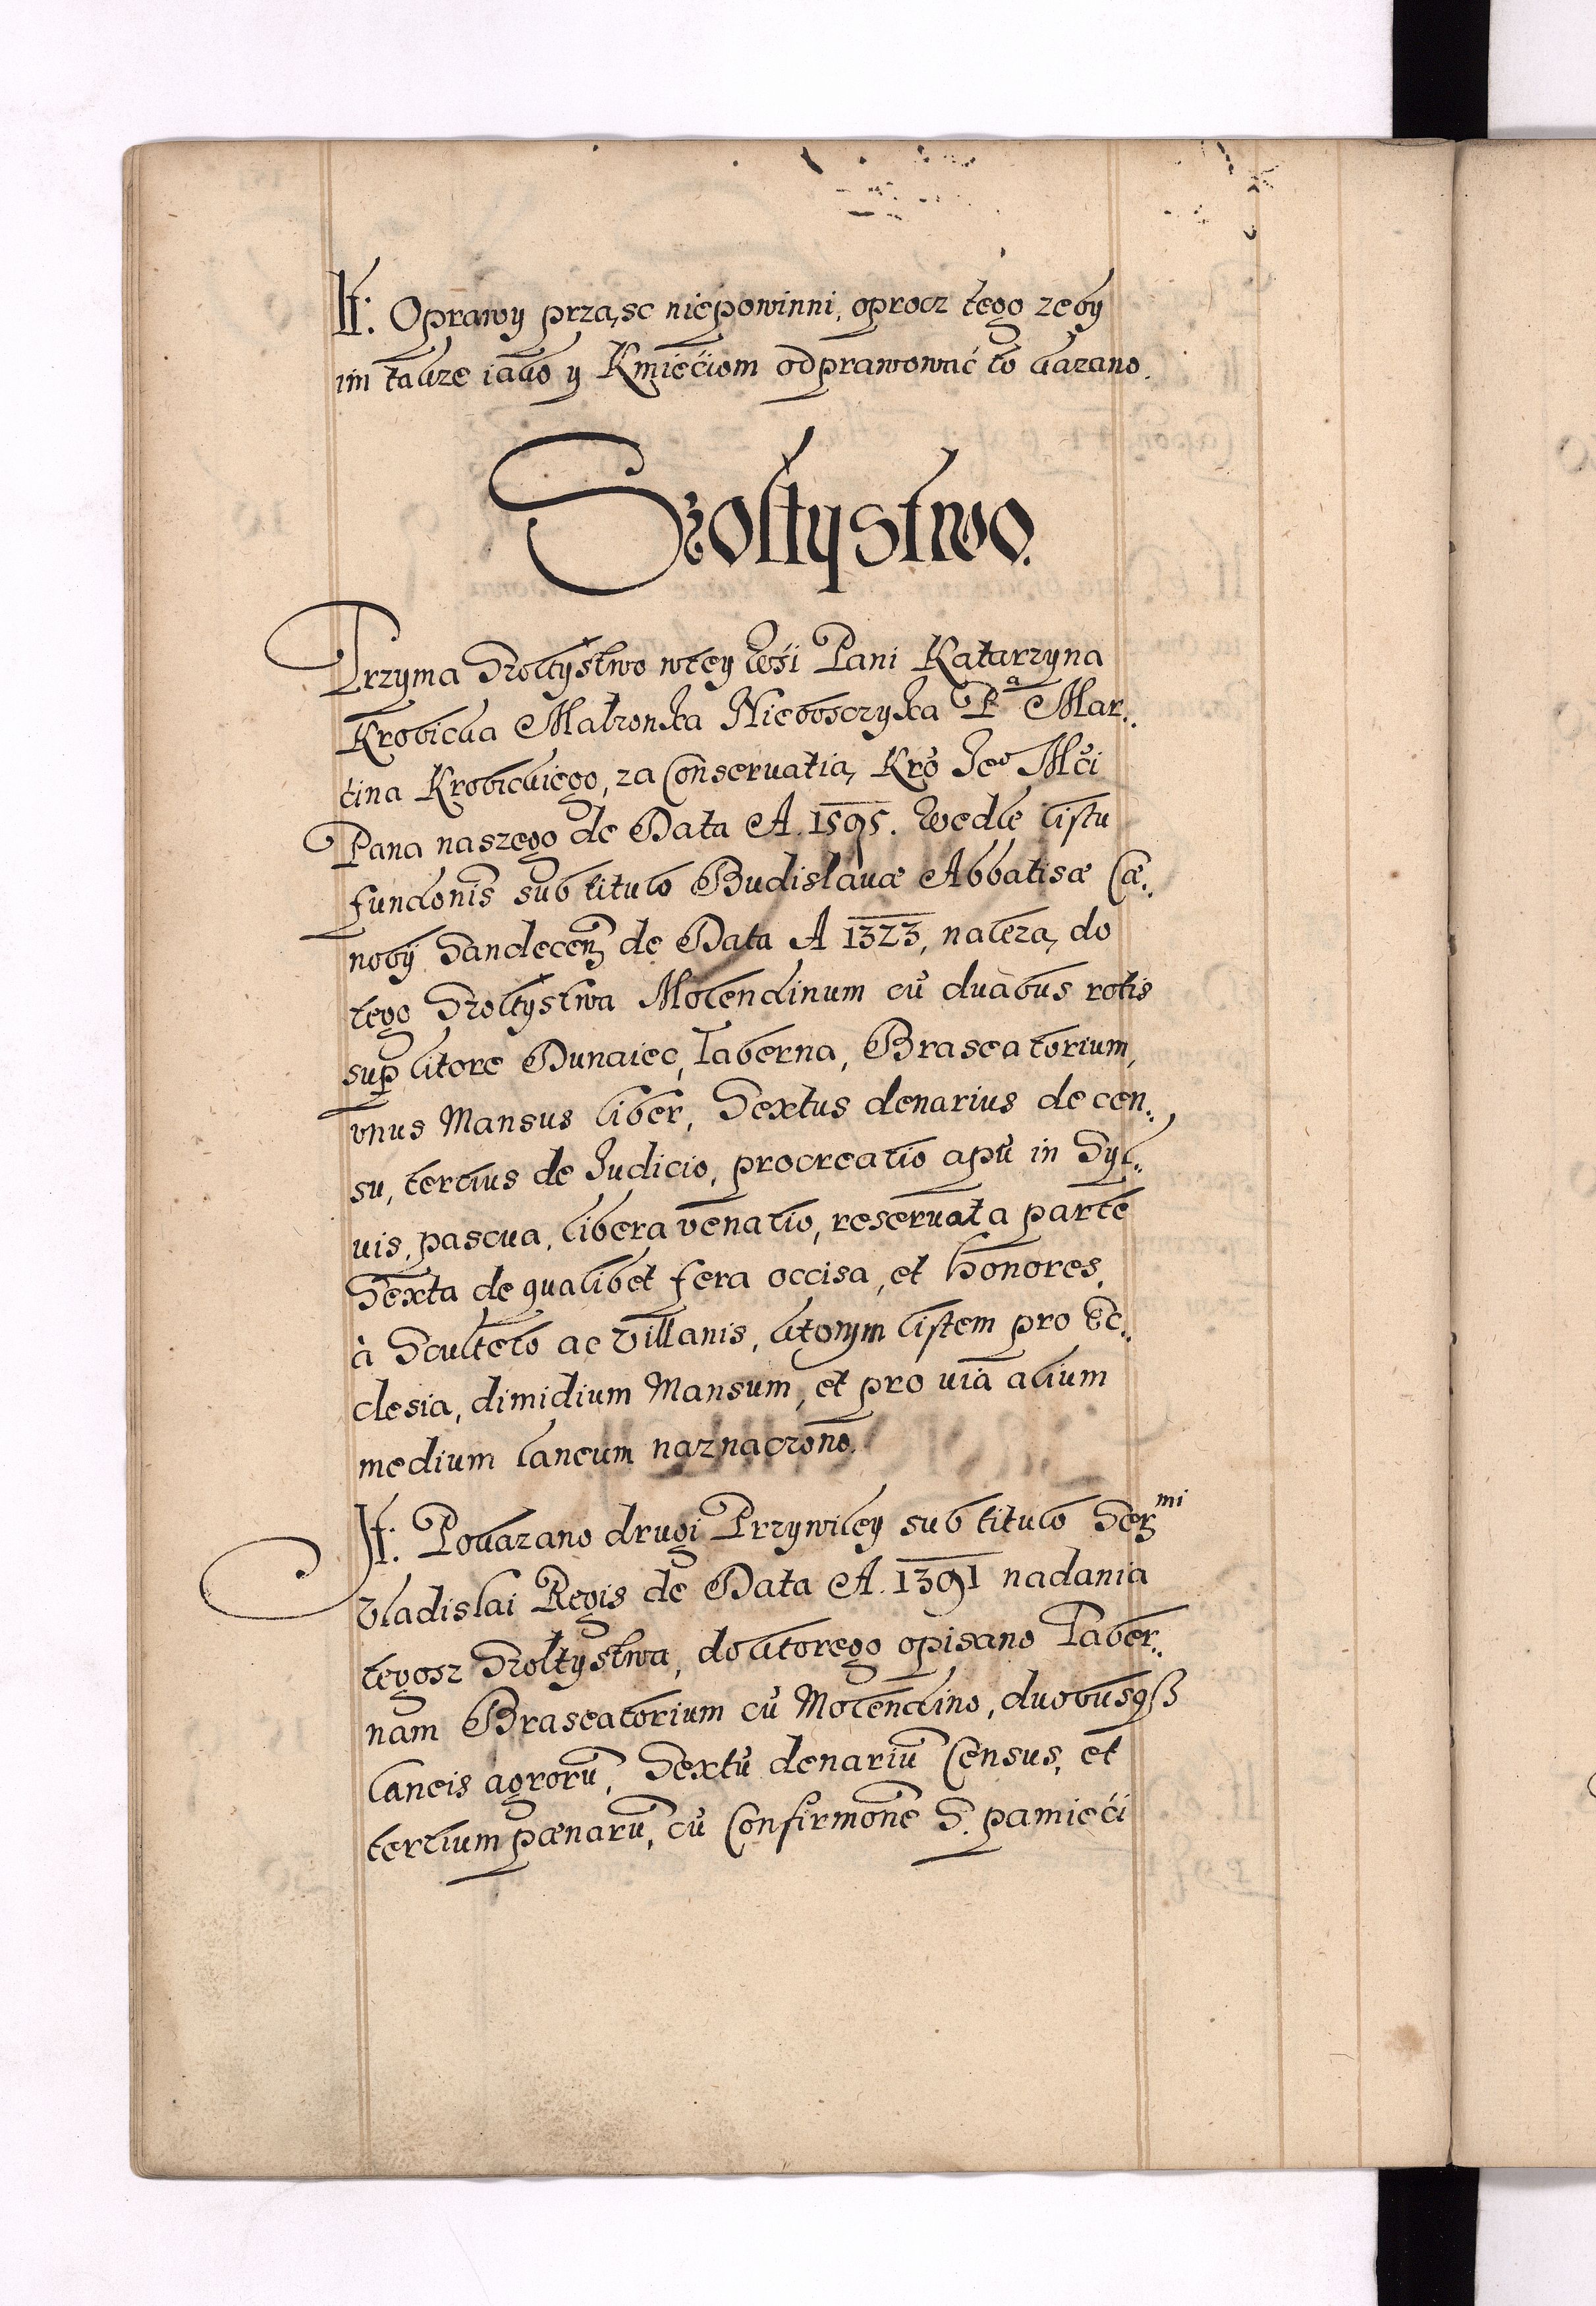 It: Oprawy prząsc niepowinni, oprocz tego zeby
im takze iako y Kmiećiom odprawować to kazano.
Szołtystwo.
Trzyma Szołtystwo wtey Wśi Pani Katarzyna
Krobicka Małzonka Nieboszczyka Pᵃ Mar„
cina Krobickiego, za Conseruatią Kro̅ Jeº Mći
Pana naszego de Data A. 1595. Wedle listu
fundo̅nis sub titulo Budislauæ Abbatisæ Cæ„
nobÿ Sandecen̅ de Data A 1323, nalezą do
tego Szołtystwa Molendinum cu̅ duabus rotis
sup̱ litore Dunaiec, Taberna, Braseatorium,
vnus Mansus liber, Sextus denarius de cen„
su, tertius de Judicio, procreatio apu̅ in Syl„
uis, pascua, libera venatio, reseruata parte
Sexta de qualibet fera occisa, et honores,
à Sculteto ac Villanis, ktorym listem pro Ec„
clesia, dimidium Mansum, et pro uia alium
medium laneum naznaczono.
It: Pokazano drugi Przywiley sub titulo Serᵐⁱ
Vladislai Regis de Data A. 1391 nadania
tegosz Szołtystwa, do ktorego opisano Taber„
nam Braseatorium cu̅ Molendino, duobusqß
laneis agroru̅, Sextu̅ denariu̅ Census, et
tertium pœnaru̅, cu̅ Confirmo̅ne S. pamięći